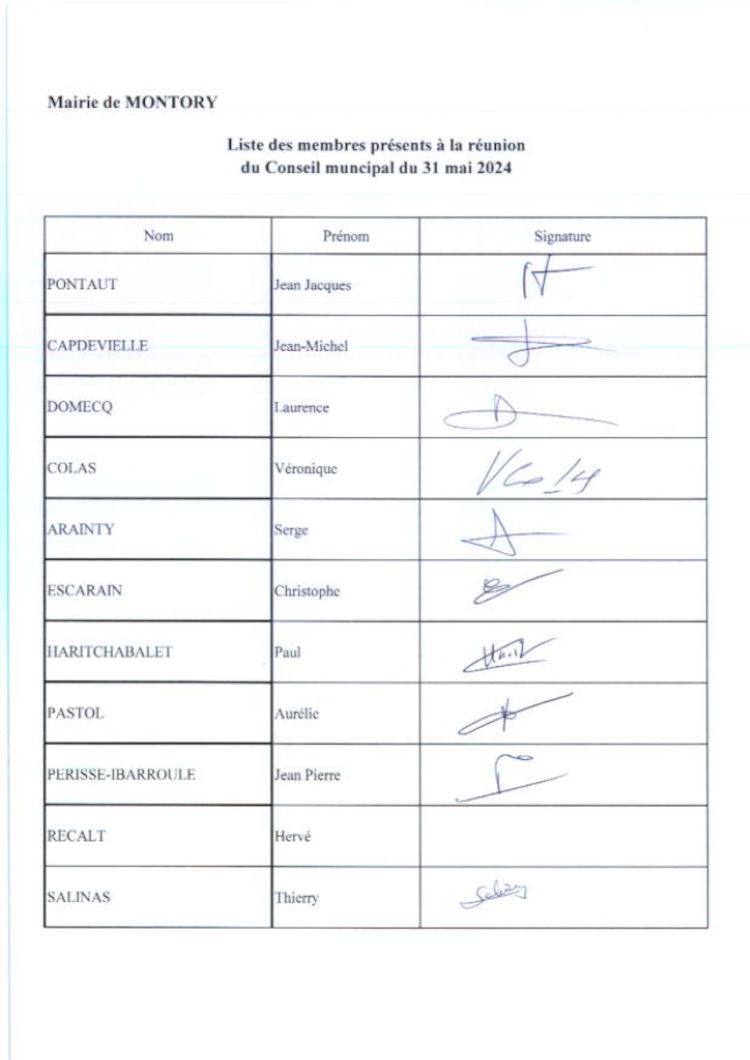 Mairie de MONTORY
Liste des membres présents à la réunion
du Conseil muncipal du 31 mai 2024
Nom Prénom Signature
PONTAUT Jean Jacques
CAPDEVIELLE Jean-Michel
DOMECQ Laurence
COLAS Véronique
ARAINTY Serge
ESCARAIN Christophe
HARITCHABALET Paul
PASTOL Aurélie
PERISSE-IBARROULE Jean Pierre
RECALT Hervé
SALINAS Thierry